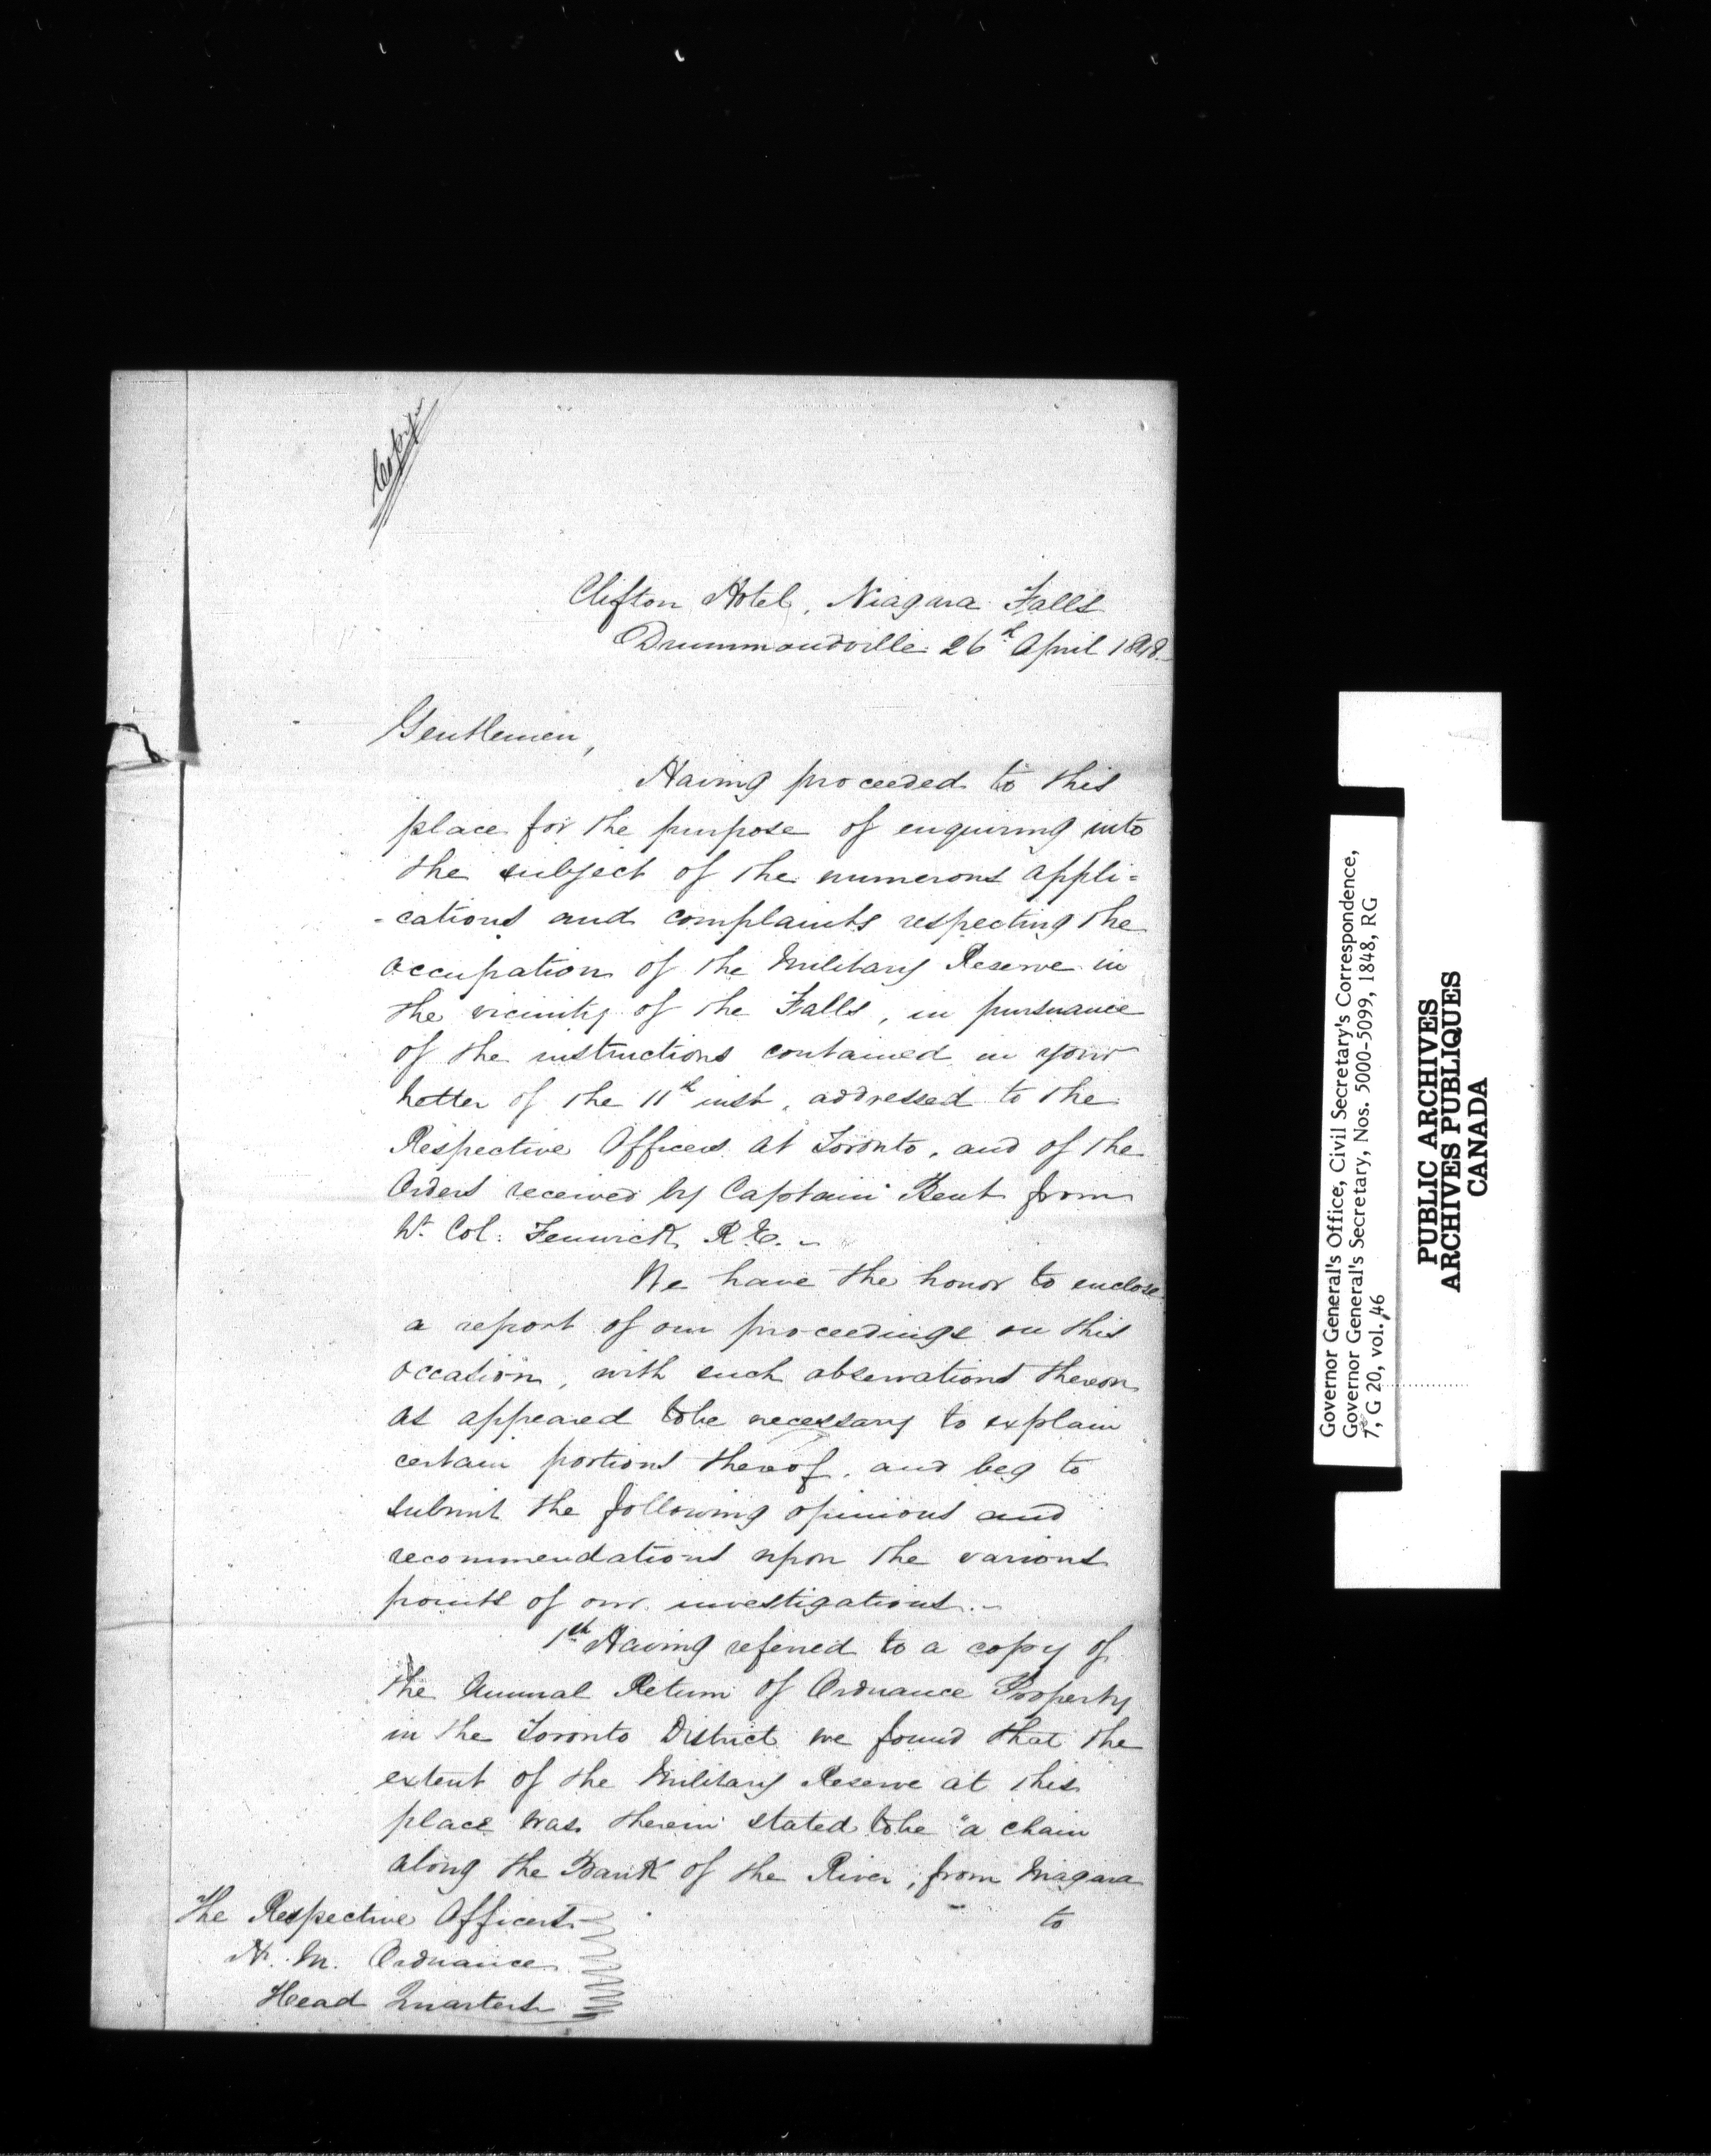 Copy
Clifton Hotel, Niagara Falls
Drummondville 26th April 1848.
Gentlemen,
Having proceeded to this
place for the purpose of enquiring into
the subject of the numerous appli=
=cations and complaints respecting the
occupation of the Military Reserve in
the vicinity of the Falls, in pursuance
of the instructions contained in your
letter of the 11th inst, addressed to the
Respective Officers at Toronto, and of the
Orders received by Captain Bent from
Lt. Col: Fenwick R.E. -
We have the honor to enclose
a report of our proceedings on this
occasion, with such observations thereon
as appeared to be necessary to explain
certain portions thereof, and beg to
submit the following opinions and
recommendations upon the various
points of our investigations. -
1st Having referred to a copy of
the Annual Return of Ordnance Property
in the Toronto District we found that the
extent of the Military Reserve at this
place was therein stated to be "a chain
along the Bank of the River, from Niagara
to
The Respective Officers
H. M. Ordnance
Head Quarters
Governor General's Office, Civil Secretary's Correspondence,
Governor General's Secretary, Nos. 5000-5099, 1848, RG
7, G 20, vol. 46
PUBLIC ARCHIVES
ARCHIVES PUBLIQUES
CANADA